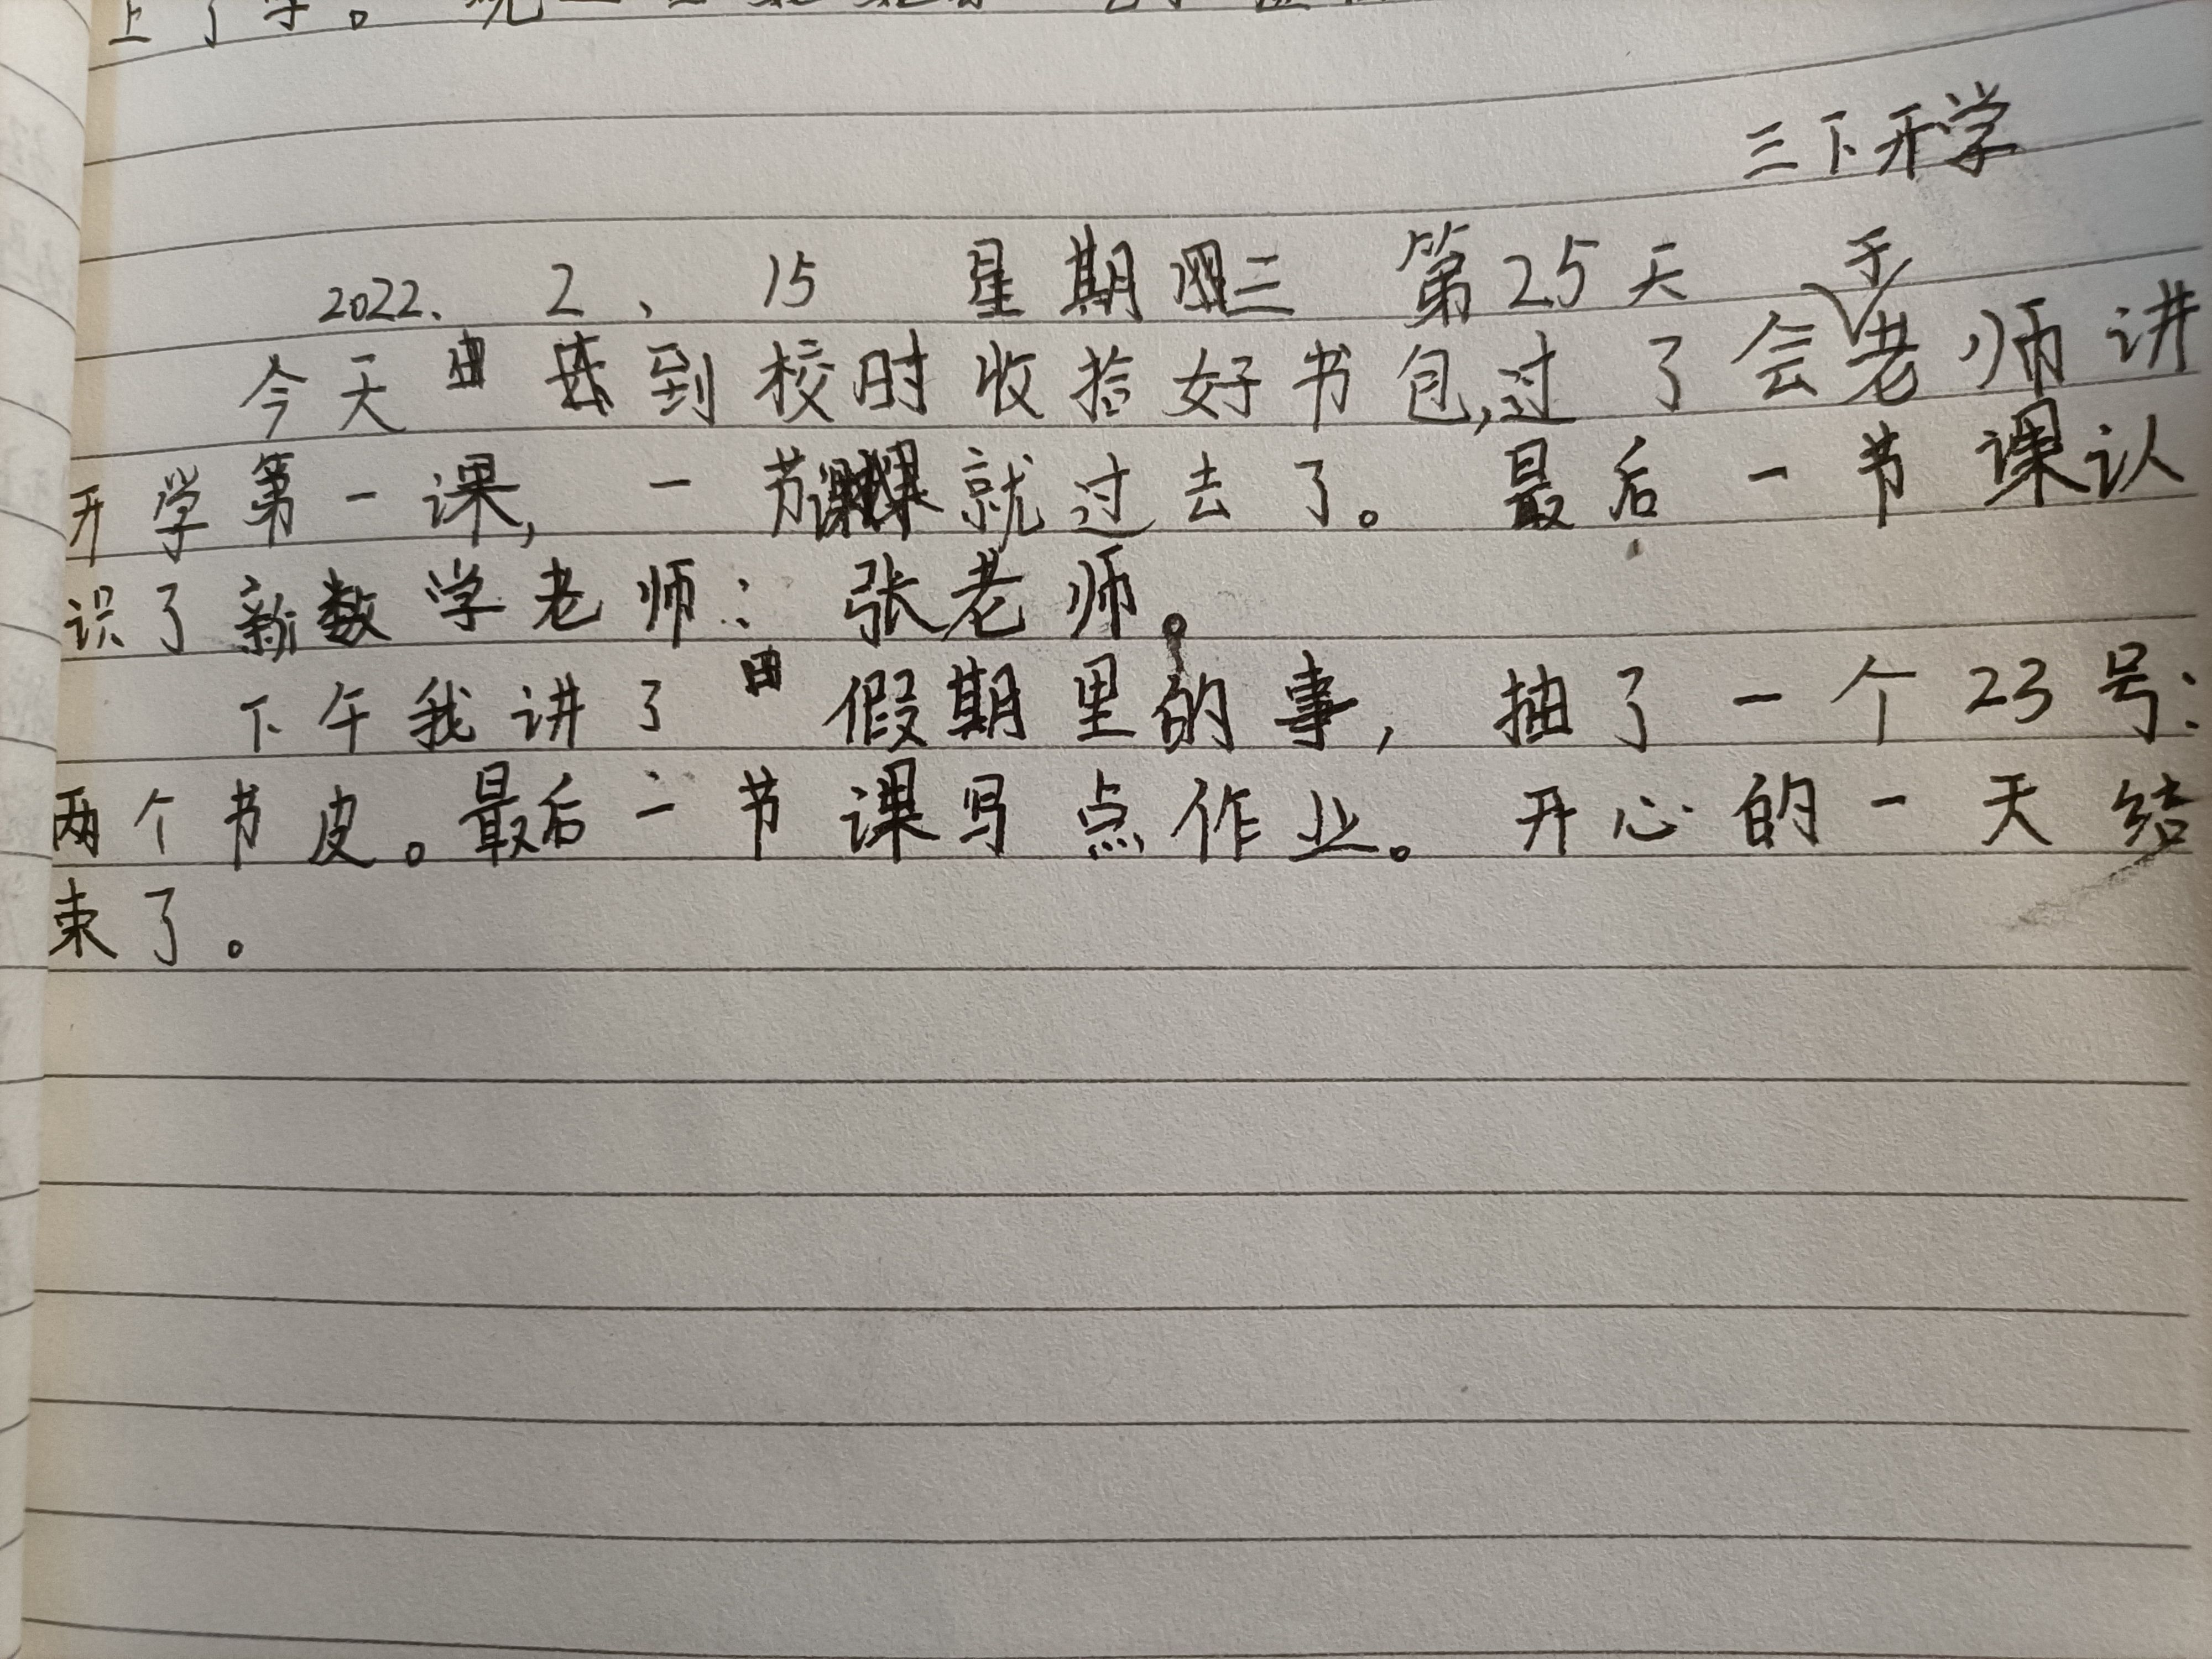 三下开学
2022. 2、 15 星期三 第25天
今天到校时收拾好书包,过了会于老师讲
开学第一课, 一节课就过去了。 最后一节课认
识了新数学老师: 张老师。
下午我讲了假期里的事, 抽了一个23号:
两个书皮。最后一节课写点作业。 开心的一天结
束了。